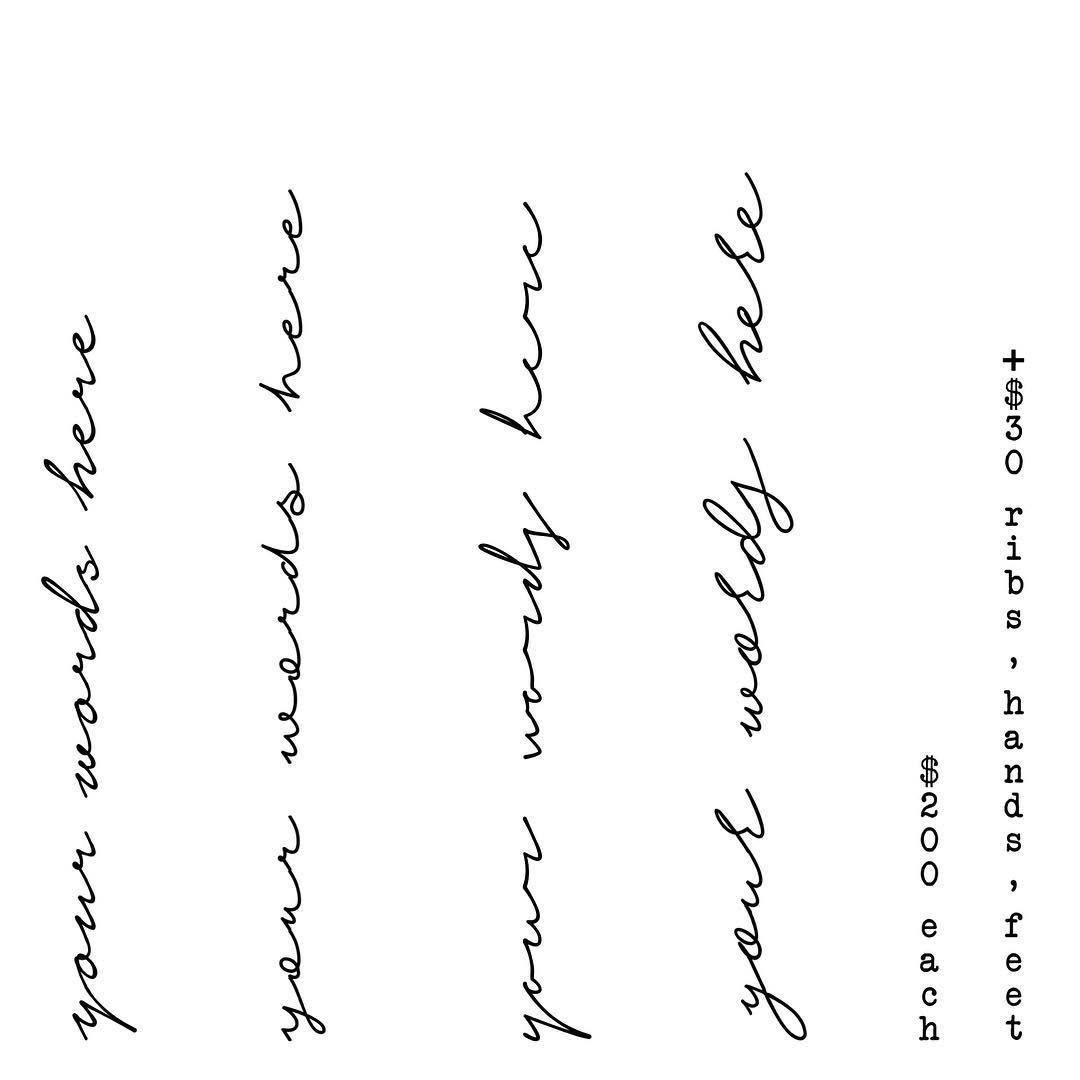 your words here
your words here
your words here
your words here
$200 each
+$30 ribs,hands,feet